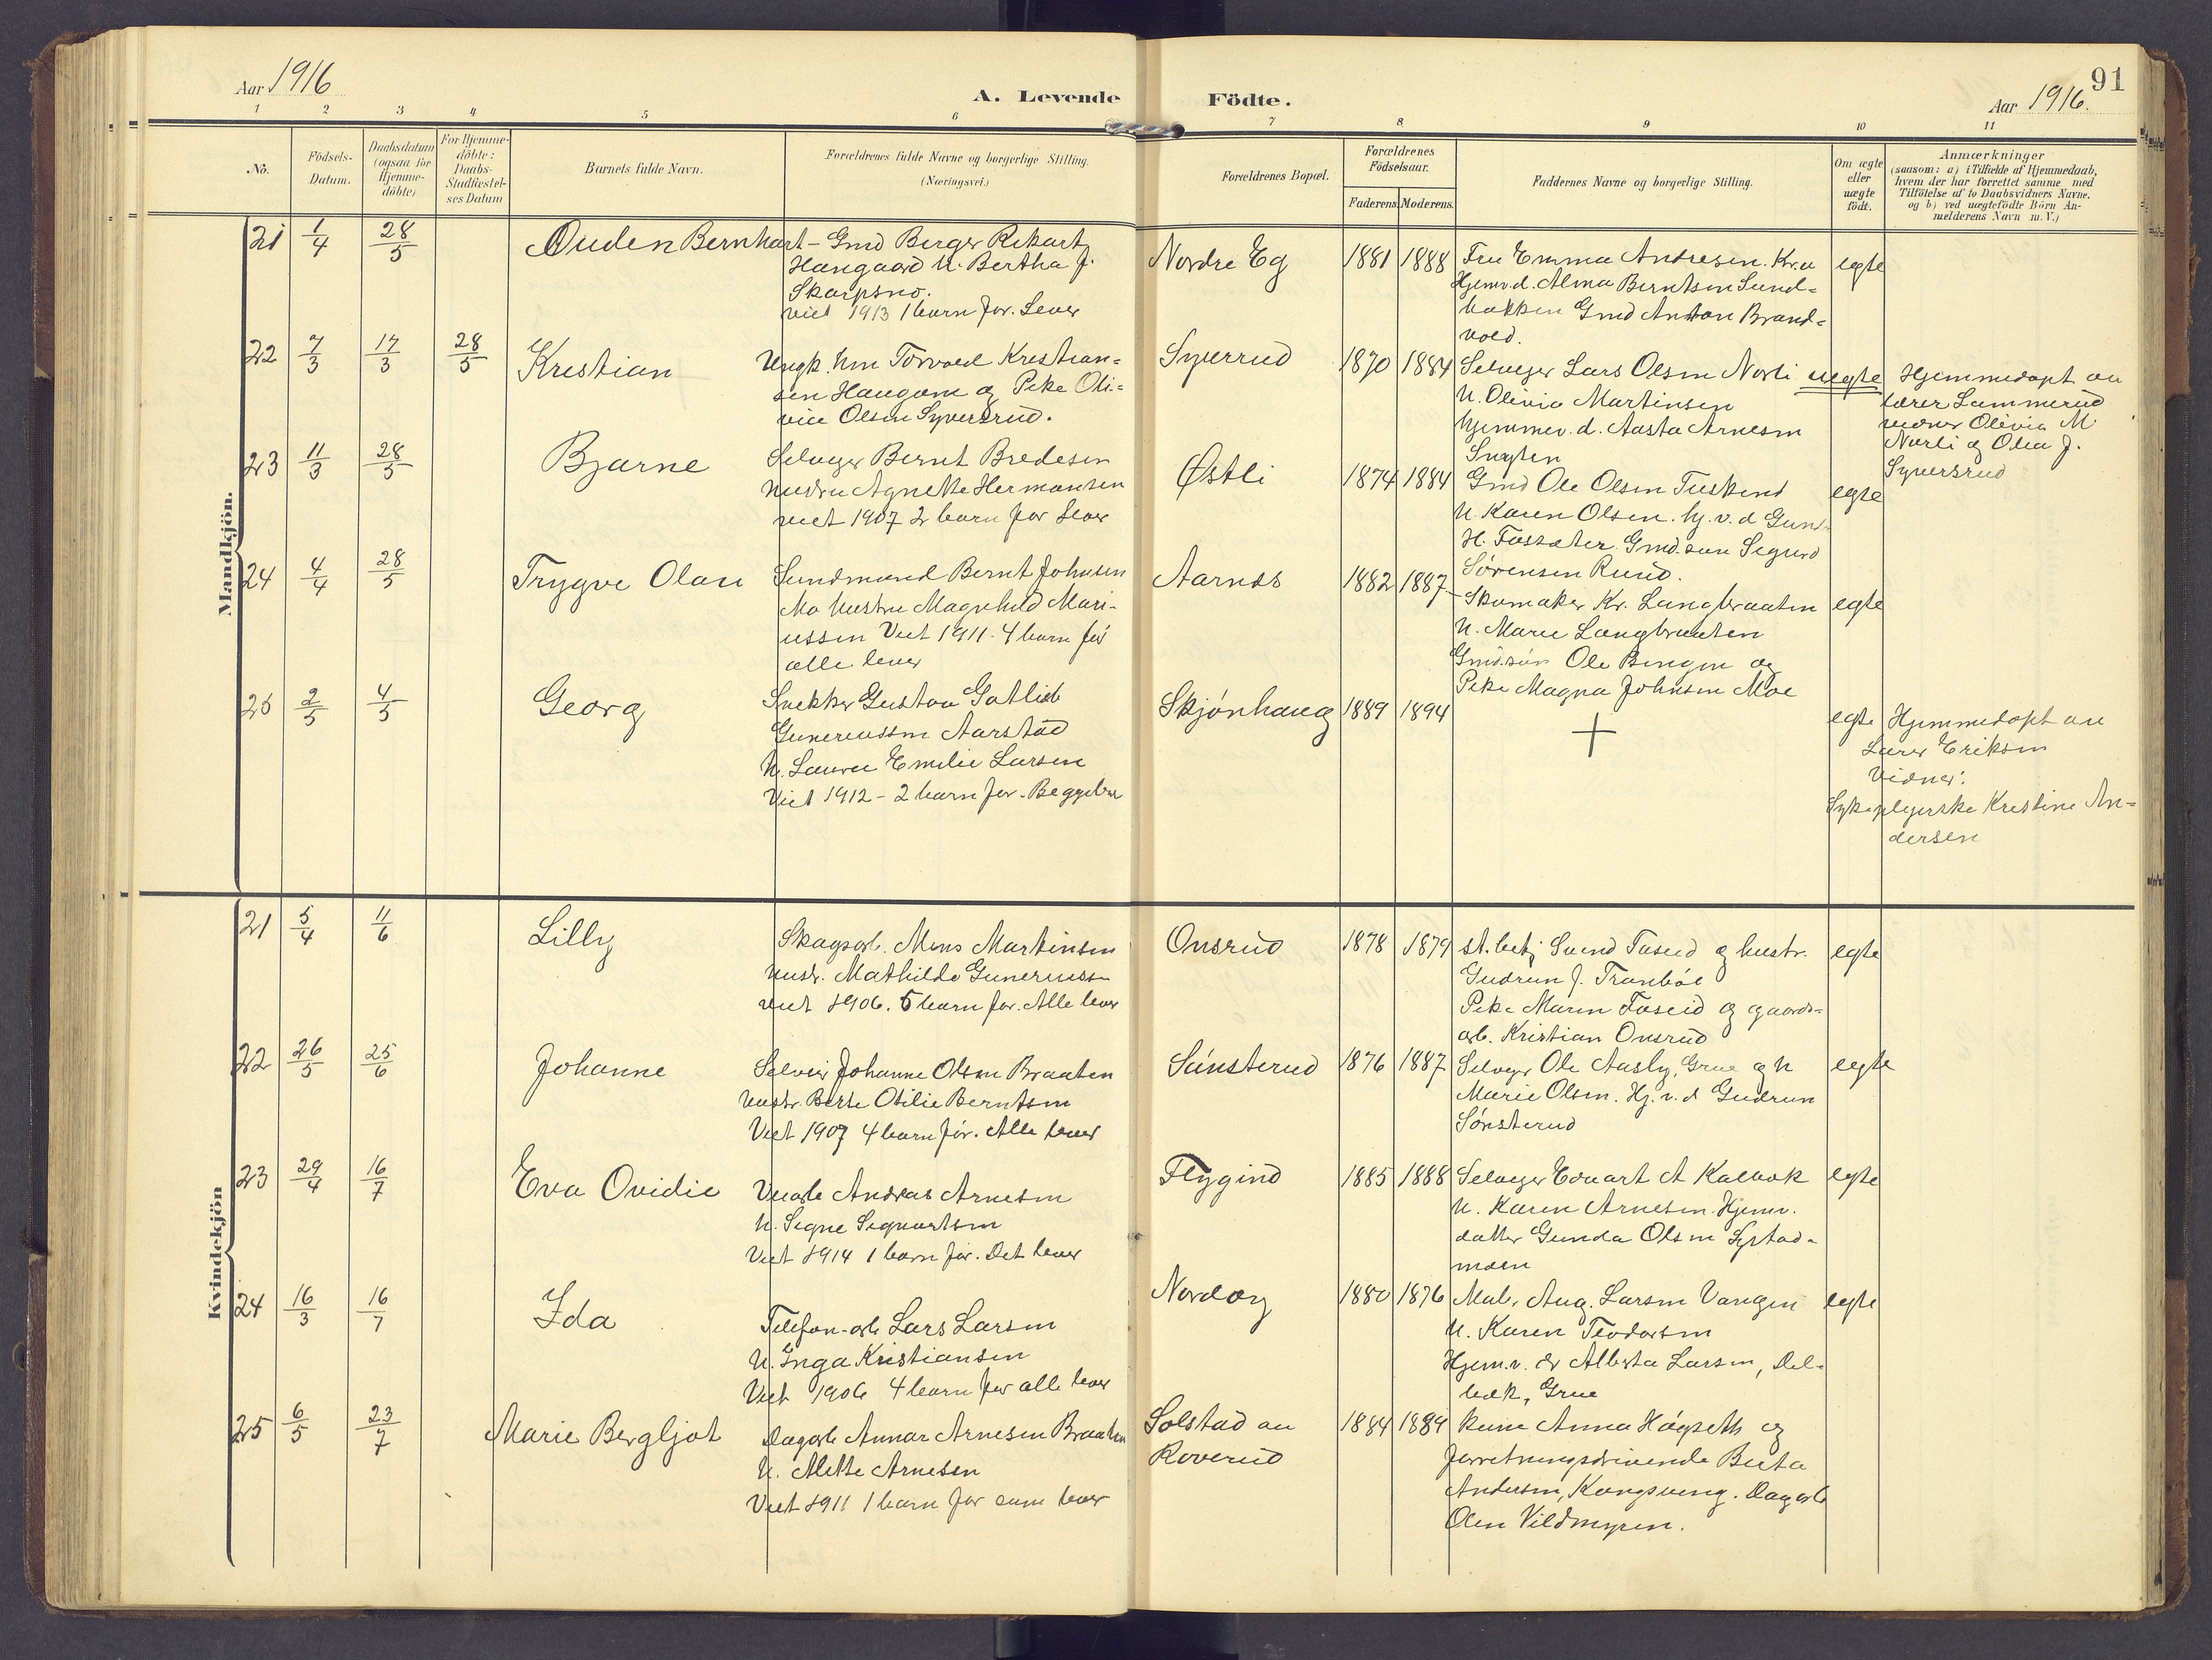 Aar 1916
A. Levende
Födte.
Aar 1916.
91
1 2 3 4 5 6 7 8 9 10 11
No.
Födsels-Datum.
Daabsdatum (ogsaa for Hjemme-döbte)
For Hjemme-döbte: Daabs-Stadfæstel-ses Datum
Barnets fulde Navn.
Forældrenes fulde Navne og borgerlige Stilling.
(Næringsvei.)
Forældrenes Bopæl.
Forældrenes Födselsaar.
Faderens. Moderens.
Faddernes Navne og borgerlige Stilling.
Om ægte eller uægte födt.
Anmærkninger
(saasom: a) i Tilfælde af Hjemmedaab, hvem der har forrettet samme med Tilföielse af to Daabsvidners Navne, og b) ved uægtefödte Börn An-melderens Navn m. V.)
Mandkjön.
21 1/4 28/5 Ouden Bernhart
Gmd Berger Rikart
Haugaard h. Bertha J.
Skarpsno.
viet 1913 1 barn før. Lever
Nordre Eg 1881 1888
Fru Emma Andresen. Kr.a
Hjemv.d. Alma Berntsen Sund=
bakken Gmd Anton Brand=
vold.
egte
22 7/3 17/3 28/5 Kristian
Ungk. Torvald Kristian=
sen Haugom og Pike Oli=
vie Olsen Syversrud.
Syverrud 1870 1884
Selveger Lars Olsen Norli
h. Olivia Martinsen
hjemmev. d. Aasta Arnesen
uegte
Hjemmedøpt av
lærer Lammerud
vidner Olivia M.
Norli og Olea J.
Syversrud
23 11/3 28/5 Bjarne
Selveger Bernt Bredesen
hustru Agnethe Hermansen
viet 1907 2 barn før lever
Østli 1874 1884
Gmd Ole Olsen Tuskind
h. Karen Olsen. hj. v. d Gund
H. Fossæter. Gmd.søn Sigurd
Sørensen Ruud.
egte
24 4/4 28/5 Trygve Olav
Sundmand Bernt Johnsen
Mo hustru Magnhild Mari-
ussen Viet 1911. 4 barn før
alle lever
Aarnes 1882 1887
Skomaker Kr. Langbraaten
h. Marie Langbraaten
Gmd.søn Ole Bingen og
Pike Magna Johnsen Moe
egte
25 2/5 4/5 Georg
Snekker Gustav Gotlieb
Gunerussen Aarstad
h. Laura Emilie Larsen
Viet 1912 - 2 barn før. Begge lever
Skjønhaug 1889 1894
+
egte
Hjemmedøpt av
Lærer Eriksen
Vidner:
Sykepleyerske Kristine An=
dersen
Kvindekjön
21 5/4 11/6 Lilly
Skogsarb. Mons Martinsen
hustr. Mathilde Gunerussen
viet 1906. 5 barn før. Alle lever
Onsrud 1878 1879
st.betj Svend Faseid og hustr.
Gudrun J. Tranbøe
Pike Maren Faseid og gaards=
arb. Kristian Onsrud
egte
22 26/5 25/6 Johanne
Selveier Johanne Olsen Braaten
hustr. Berte Otilie Berntsen
Viet 1907 4 barn før. Alle lever
Sønsterud 1876 1887
Selveger Ole Aasly, Grue og h
Marie Olsen. Hj. v. d Gudrun
Sønsterud
egte
23 29/4 16/7 Eva Ovidie
Veiarb Andreas Arnesen
h. Signe Sigvartsen
Viet 1914 1 barn før. Det lever
Flygind 1885 1888
Selveger Edvart A Kalbæk
h. Karen Arnesen Hjemv.
datter Gunda Olsen Systad-
moen
egte
24 16/3 16/7 Ida
Telefon-arb Lars Larsen
h. Inga Kristiansen
Viet 1906 4 barn før alle lever
Nordøy 1880 1876
Mal. Aug. Larsen Vangen
h. Karen Teodorsen
Hjem.v. dr Alberta Larsen, Del-
bæk, Grue
egte
25 6/5 23/7 Marie Bergljot
Dagarb Annar Arnesen Braaten
h. Mette Arnesen
Viet 1911 1 barn før som lever
Solstad av
Roverud 1884 1889
Anna Høgseth og
forretningsdrivende Berta
Andersen, Kongsving. Dagarb
Olen Vildmyren.